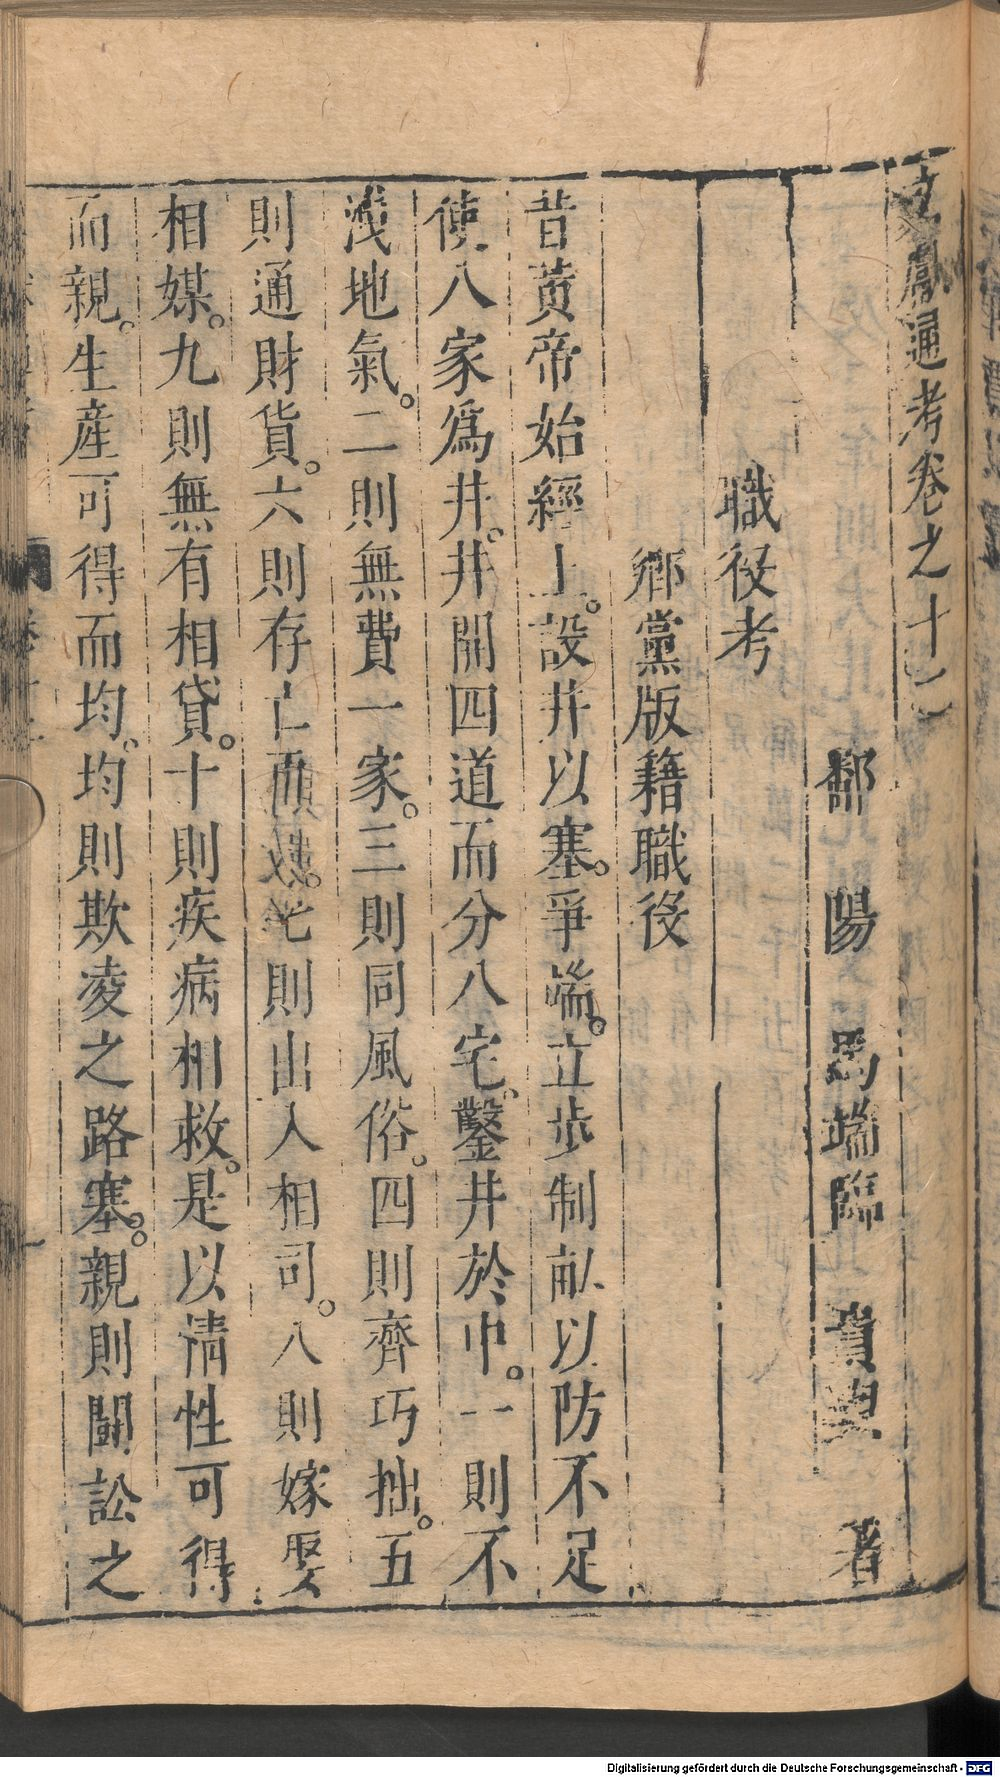 文獻通考卷之十二
鄱陽馬端臨貴與著
職役考
鄉黨版籍職役
昔黄帝始經土。設井以塞。爭端。立步制畝以防不足
使八家爲井。井開四道而分八宅、鑿井於中。一則不
洩地氣。二則無費一家。三則同風俗。四則齊巧拙。五
則通財貨。六則存亡更守。七則出入相司。八則嫁娶
相媒。九則無有相貸。十則疾病相救。是以情性可得
而親。生産可得而均、均則欺凌之路塞。親則鬭訟之
Digitalisierung gefördert durch die Deutsche Forschungsgemeinschaft - DFG